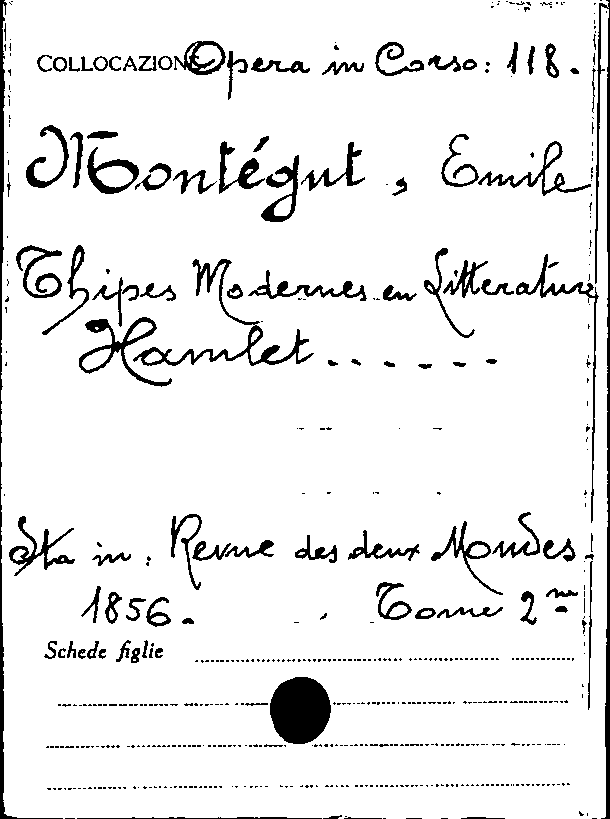 COLLOCAZIONE Opera in Corso: 118.
Montégut, Emile
Thipes Modernes en Litterature
Hamlet......
Sta in: Revue des deux Mondes.
1856. Tome 2me
Schede figlie